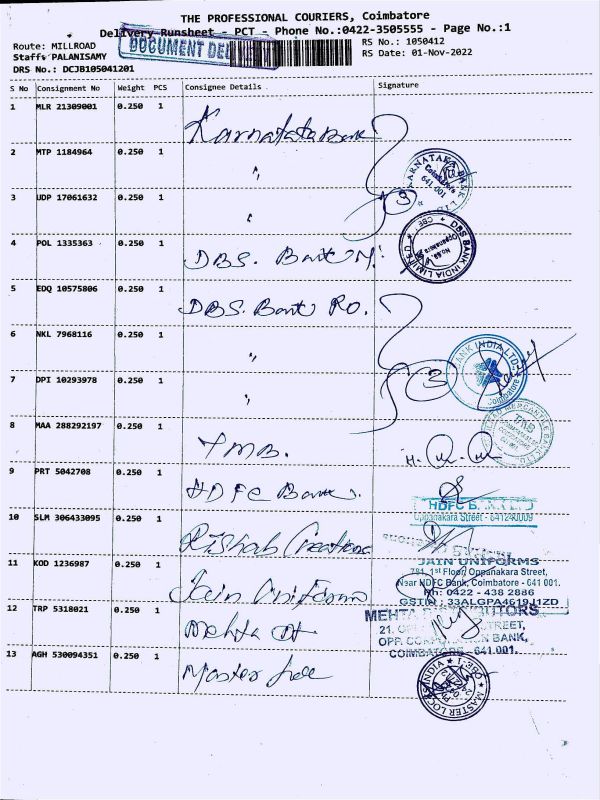 THE PROFESSIONAL COURIERS, Coimbatore
Delivery Runsheet - PCT - Phone No.:0422-3505555 - Page No.:1
Route: MILLROAD
RS No.: 1050412
DOCUMENT DEL
Staff: PALANISAMY
RS Date: 01-Nov-2022
DRS No.: DCJB105041201
S No Consignment No Weight PCS Consignee Details Signature
1 MLR 21309001 0.250 1 Karnataka Bank
2 MTP 1184964 0.250 1 "
KARNATAKA BANK LTD
Coimbatore
641 001
3 UDP 17061632 0.250 1 "
3
4 POL 1335363 0.250 1 DBS. Bank M.
DBS BANK INDIA LIMITED
5 EDQ 10575806 0.250 1 DBS. Bank RO.
6 NKL 7968116 0.250 1 "
BANK INDIA LTD
Coimbatore
7 DPI 10293978 0.250 1 "
3
8 MAA 288292197 0.250 1 TMB.
MERCANTILE
TMB
9 PRT 5042708 0.250 1 HDFC Bank.
HDFC BANK LTD
Oppanakara Street - 641
10 SLM 306433095 0.250 1 Rishab Creations
11 KOD 1236987 0.250 1 Jain Uniforms
JAIN UNIFORMS
1st Floor, Oppanakara Street,
Near HDFC Bank, Coimbatore - 641 001.
Ph: 0422 - 438 2886
GSTIN: 33ALGPA4619J1ZD
12 TRP 5318021 0.250 1 Mehta
MEHTA DISTRIBUTORS
21, STREET,
OPP. BANK,
COIMBATORE - 641.001.
13 AGH 530094351 0.250 1 Master
MASTER LOCKS INDIA